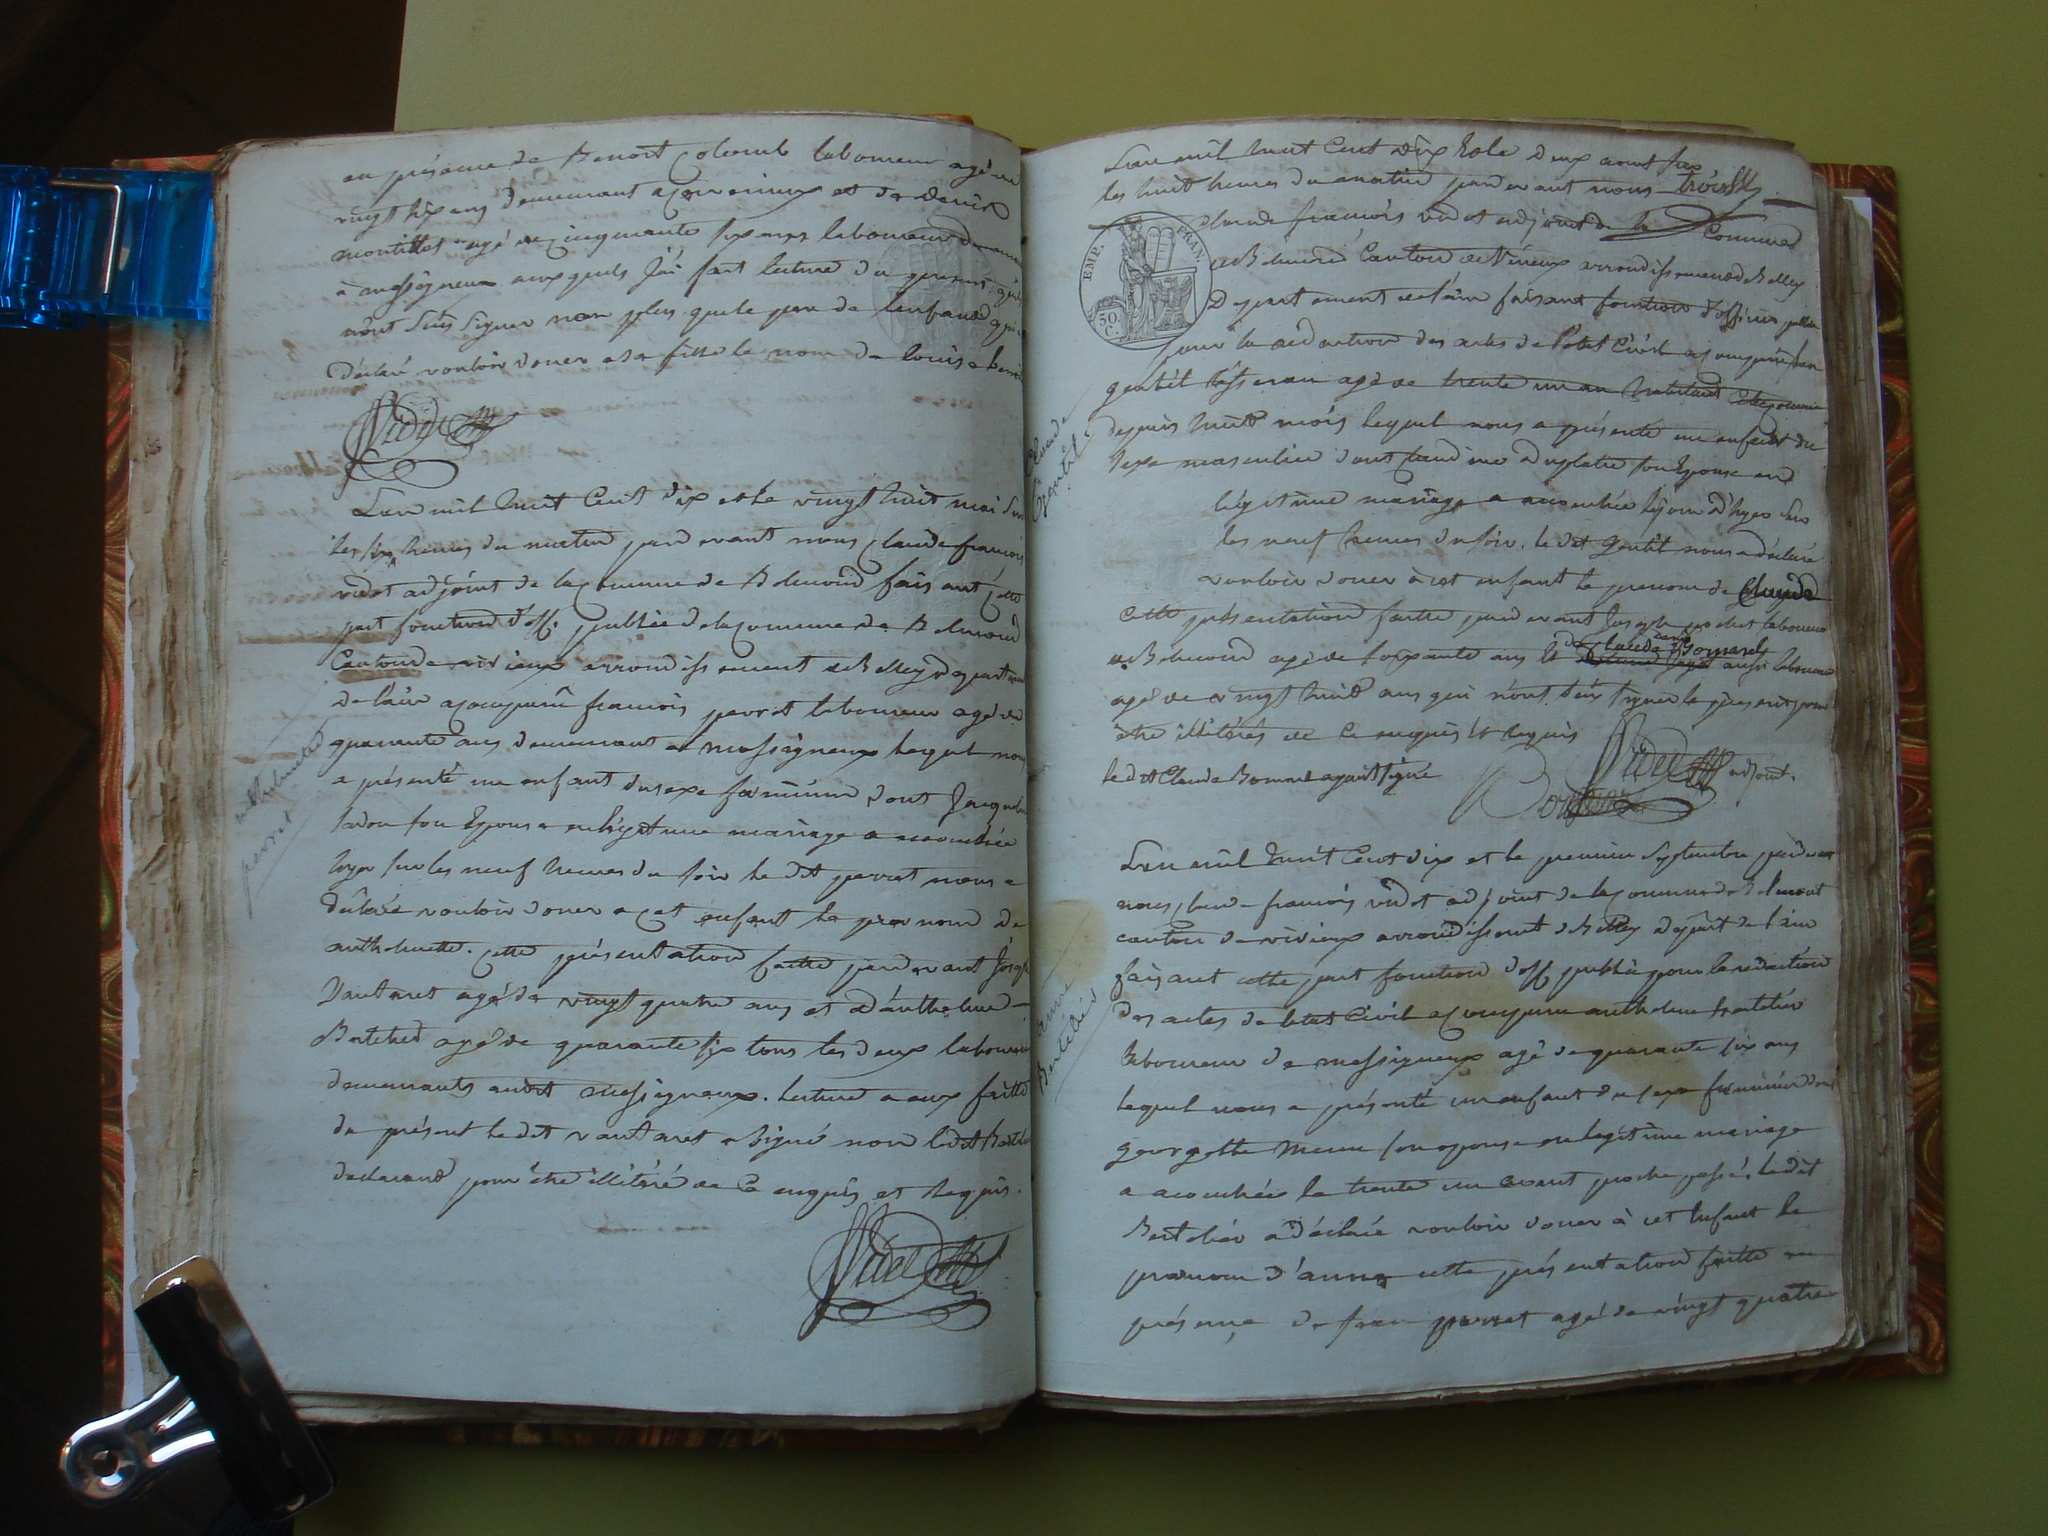 en présence de Benoit Colomb laboureur agé de
vingt six ans demeurant a et de denis
montillet agé de cinquante six ans laboureur
à massigneux auxquels j'ai fait lecture du present qui
n'ont sus signer non plus que le pere de lenfant qui a
déclaré vouloir doner a sa fille le nom de louise
Vidot
L'an mil huit Cent dix et le vingt huit mai sur
les six heures du matin pard evant nous claude francois
vidot adjoint de la commune de Belmond faisant cette
part fonctiond d'off. publiée de la commune de Belmond
Canton de virieux arrondissement de Belley departement
de l'ain a comparû francois perret laboureur agé de
quarante ans demeurant a massigneux lequel nous
a présenté un enfant du sexe feminin dont
son Epouse en légitime mariage a acouchée
hyer sur les neuf heures du soir le dit perret nous a
déclaré vouloir doner a cet enfant le prenom de
anthelmette. cette présentation faitte pard evant Joseph
Vautaret agé de vingt quatre ans et d'anthelme
Bertelied agé de quarante six tous les deux laboureurs
demeurants audit massigneux. lecture a eux faitte
du présent le dit vautaret a signé non ledit
declarand pour être illitéré de Ce enquis et Requis.
Vidot
anthelmette
perret
L'an mil huit Cent dix & le deux aout sur
les huit heures du matin pard evant nous
claude francois vidot adjoint de la Commune
EMP. FRAN.
50 C.
de Belmond Canton de Virieux arrondissement de Belley
Departement de l'ain faisant fonction d'officier public
pour la redaction des actes de l'etat Civil a comparu
gentil tisseran agé de trente un an habitant
depuis huit mois lequel nous a présenté un enfant du
sexe masculin dont claudine Duplatre son Epouse en
légitime mariage a acouchée le jour d'hyer sur
les neuf heures du soir. le dit gentil nous a déclaré
vouloir doner à cet enfant le prenom de Claude
Cette présentation faitte pard evant Joseph laboureur
de Belmond agé de soixante ans & de Claude aussi laboureur
agé de vingt huit ans qui n'ont sus signer le present pour
être illitérés de Ce enquis & Requis
le dit Claude ayant signé
Vidot adjoint.
Claude
gentil
L'an mil huit Cent dix et le premier septembre pard evant
nous claude francois vidot adjoint de la commune de Belmont
canton de virieux arrondissement de Belley départ. de l'ain
faisant cette part fonction d'off. public pour la redaction
des actes de l'etat Civil a comparu anthelme Bertelier
laboureur de massigneux agé de quarante six ans
lequel nous a présenté un enfant du sexe feminin dont
georgette son epouse en legitime mariage
a acouchée le trente un aout proche passé. le dit
Bertelier a déclaré vouloir doner à cet enfant le
prenom d'anne cette présentation faitte en
présence de perret agé de vingt quatre
anne
Bertelier